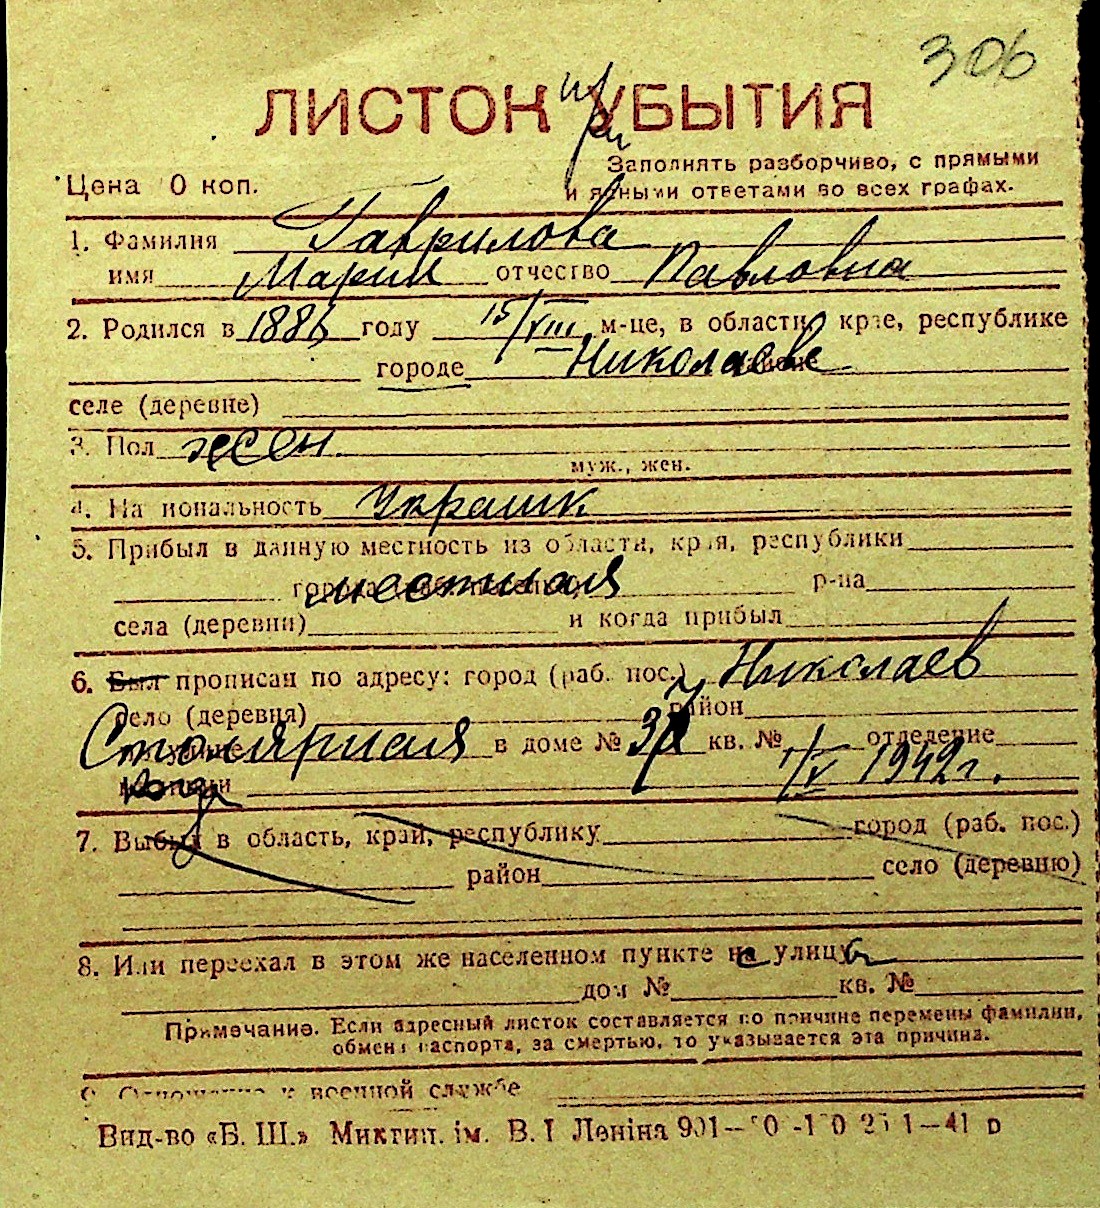 306
ЛИСТОК УБЫТИЯ
при
Заполнять разборчиво, с прямыми
Цена 0 коп. и ясными ответами во всех графах.
1. Фамилия Гаврилова
имя Мария отчество Павловна
2. Родился в 1886 году 15/VIII м-це, в области, крае, республике
городе Николаеве
селе (деревне)
3. Пол жен.
муж., жен.
4. Национальность Украинк
5. Прибыл в данную местность из области, края, республики
города местная р-на
села (деревни) и когда прибыл
6. Был прописан по адресу: город (раб. пос.) Николаев
село (деревня) район
Столярная в доме № 37 кв. № отделение
милиции 1/V 1942 г.
7. Выбыл в область, край, республику город (раб. пос.)
район село (деревню)
8. Или переехал в этом же населенном пункте на улицу
дом № кв. №
Примечание. Если адресный листок составляется по причине перемены фамилии,
обмена паспорта, за смертью, то указывается эта причина.
9. Отношение к военной службе
Вид-во «Б. Ш.» Миктип. ім. В. І Леніна 901